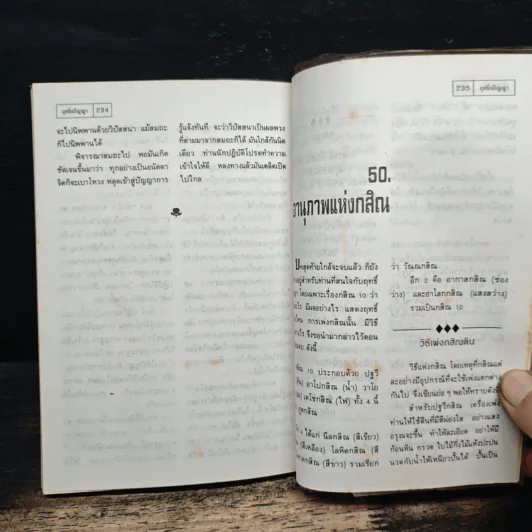 ฤทธิ์ปัญญา 234
จะไปนิพพานด้วยวิปัสสนา แม้สมถะ
ก็ไปนิพพานได้
พิจารณาสมถะไป พอมันเกิด
ชัดเจนขึ้นมาว่า ทุกอย่างเป็นอนัตตา
จิตก็จะเบาโหวง หลุดเข้าสู่ปัญญาการ
รู้แจ้งทันที จะว่าวิปัสสนาเป็นผลพวง
ที่ตามมาจากสมถะก็ได้ มันใกล้กันนิด
เดียว ท่านนักปฏิบัติโปรดทำความ
เข้าใจให้ดี หลงทางแล้วมันเตลิดเปิด
ไปไกล
235 ฤทธิ์ปัญญา
50.
อานุภาพแห่งกสิณ
สุดท้ายใกล้จะจบแล้ว ก็ยัง
อยู่สำหรับท่านที่สนใจกับฤทธิ์
โดยเฉพาะเรื่องกสิณ 10 ว่า
มีผลอย่างไร แสดงฤทธิ์
ไหน การเพ่งกสิณนั้น มีวิธี
ไร จึงขอนำมากล่าวไว้ตอน
ดังนี้
10 ประกอบด้วย ปฐวี
อาโปกสิณ (น้ำ) วาโย
เตโชกสิณ (ไฟ) ทั้ง 4 นี้
4 ได้แก่ นีลกสิณ (สีเขียว)
(สีเหลือง) โลหิตกสิณ (สี
(สีขาว) รวมเรียก
ว่า วัณณกสิณ
อีก 2 คือ อากาสกสิณ (ช่อง
ว่าง) และอาโลกกสิณ (แสงสว่าง)
รวมเป็นกสิณ 10
วิธีเพ่งกสิณดิน
วิธีเพ่งกสิณ โดยเหตุที่กสิณแต่
ละอย่างมีอุปกรณ์ที่จะใช้เพ่งแตกต่าง
กันไป จึงเขียนย่อ ๆ พอให้ทราบดังนี้
สำหรับปฐวีกสิณ เครื่องเพ่ง
ท่านให้ใช้ดินที่มีสีผ่องใส อย่างแสง
อรุณจะขึ้น ทำให้ละเอียด อย่าให้มี
ก้อนหิน กรวด ใบไม้กิ่งไม้แห้งปะปน
นวดกับน้ำให้เหนียวปั้นได้ ปั้นเป็น